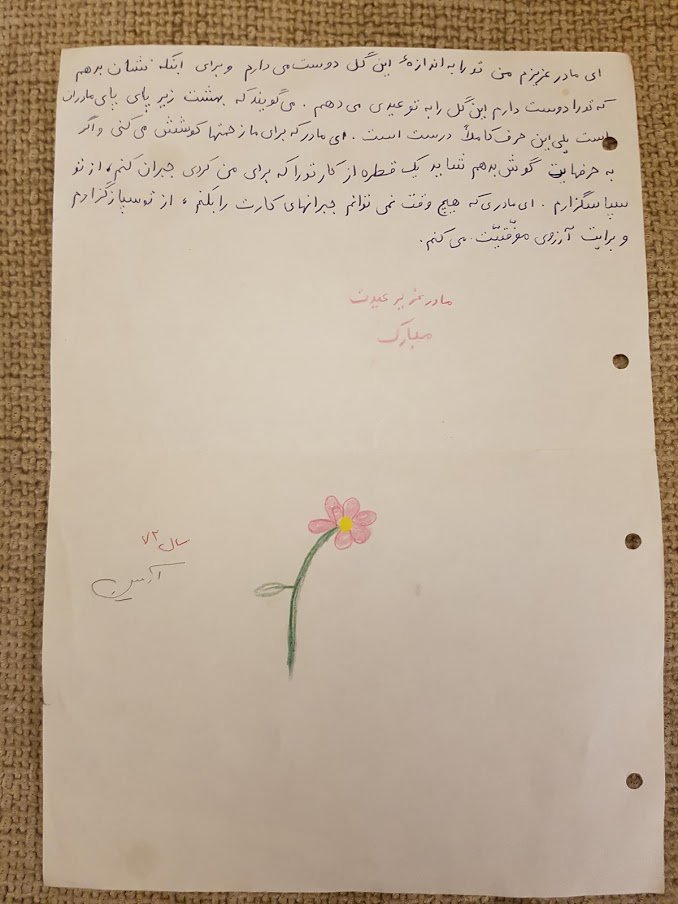 ای مادر عزیزم من تو را به اندازهٔ این گل دوست می دارم و برای اینکه نشان بدهم
که تو را دوست دارم این گل را به تو عیدی می دهم. می گویند که بهشت زیر پای مادران
است بلی این حرف کاملاً درست است. ای مادر که برای ما زحمتها کوشش می کنی و اگر
به حرفهایت گوش بدهم شاید یک قطره از کار تو را که برای من کردی جبران کنم، از تو
سپاسگزارم. ای مادری که هیچ وقت نمی توانم جبرانهای کارت را بکنم، از تو سپازگزارم
و برایت آرزوی موفّقیّت می کنم.
مادر عزیز عیدت
مبارک
سال ۷۲